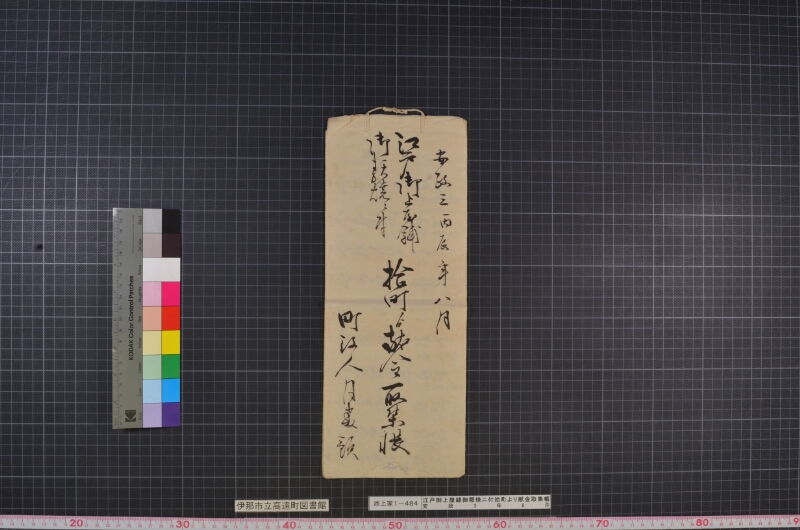 安政三丙辰年八月
江戸御上屋鋪
御類焼ニ付
拾町より献金取集帳
町江人月番頭
KODAK Color Control Patches
伊那市立高遠町図書館
池上家1-464
江戸御上屋鋪御類焼ニ付拾町より献金取集帳
20 30 40 50 60 70 80